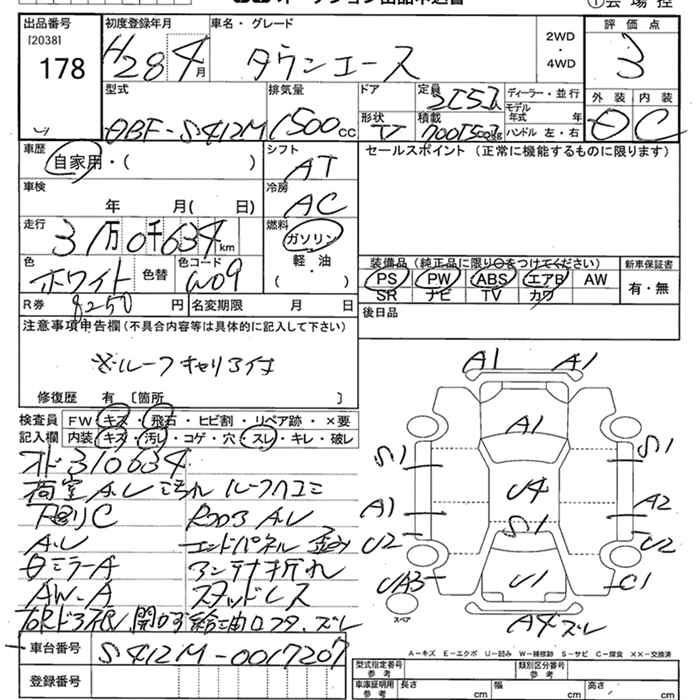 出品番号
[2038]
178
初度登録年月
H28 4月
車名・グレード
タウンエース
2WD
・
4WD
評価点
3
型式
ABF-S412M
排気量
1500cc
ドア
形状
V
定員
2[5]人
積載
700[500]kg
ディーラー・並行
モデル年式 年
ハンドル 左・右
外装 内装
D C
車歴
自家用・( )
シフト
AT
セールスポイント（正常に機能するものに限ります）
車検
年 月( 日)
冷房
AC
走行
31万0千634km
燃料
ガソリン
軽・油
( )
色
ホワイト
色替
色コード
W09
R券
8250円
名変期限 月 日
装備品（純正品に限り○をつけてください）
PS PW ABS エアB AW
SR ナビ TV カワ
新車保証書
有・無
後日品
注意事項申告欄（不具合内容等は具体的に記入して下さい）
※ルーフキャリア付
修復歴 有 〔箇所 〕
検査員 FW キズ・飛石・ヒビ割・リペア跡・×要
記入欄 内装 キズ・汚れ・コゲ・穴・スレ・キレ・破レ
オド310634
荷室A.U ミホル ルーフクコミ
下廻りC
A.U
エンドパネル歪み
ミラーA
アンテナ折れ
AW-A
スタッドレス
給油口フタ.ズレ
車台番号
S412M-0017207
登録番号
A1 A1
A1
S1 S1
U4
A1 A2
S1
U2 U2
UA3 U1 C1
スペア
A4ズレ
A－キズ E－エクボ U－凹み W－補修跡 S－サビ C－腐食 ××－交換済
型式指定番号
参考
類別区分番号
参考
車庫証明用
参考
長さ cm 幅 cm 高さ cm